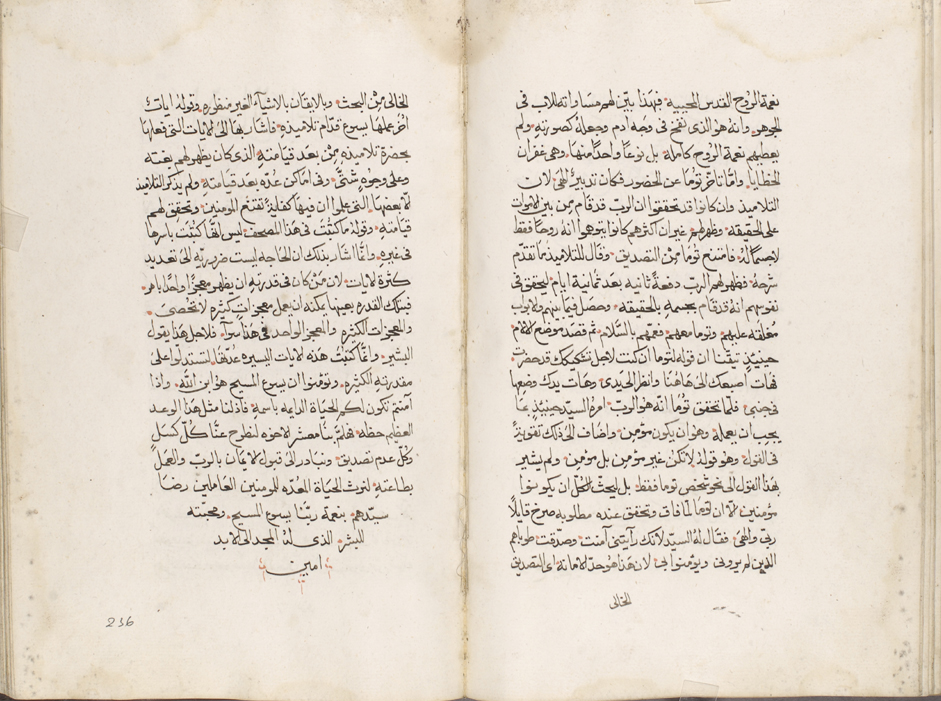 نعمة الروح القدس المحييه فهذا بيّن لهم مساواته للاب في
الجوهر وانه هو الذي نفخ في وجه ادم وجعله كصورته ولم
يعطيهم نعمة الروح كاملة بل نوعًا واحدًا منها وهي غفران
الخطايا وامّا تاخّر توما عن الحضور فكان تدبيرًا الهيًّا لان
التلاميذ وان كانوا قد تحققوا ان الرب قد قام من بين الاموات
على الحقيقه وظهر لهم غير ان اكثرهم كانوا يتوهموا انه روحًا فقط
لا جسمًا له فامتنع توما من التصديق وقال للتلاميذ بما تقدّم
شرحه فظهر لهم الرب دفعةً ثانية بعد ثمانية ايام ليحقق في
نفوسهم انه قد قام بجسمه بالحقيقه وحصل فيما بينهم والابواب
مغلقه عليهم وتوما معهم فعمّهم بالسلام ثم قصد موضع الالام
حينيذٍ تيقنا ان قوله لتوما ان كنت لاجل تشكيكك قد حضرت
فهات اصبعك الى هاهنا وانظر الى يدي وهات يدك وضعها
في جنبي فلما تحقق توما انه هو الرب امره السيّد حينيذٍ بما
يجب ان يعمله وهو ان يكون مؤمن واضاف الى ذلك تقويزًا
في القول وهو قوله لا تكن غير مؤمن بل مؤمن ولم يشير
بهذا القول الى نحو شخص توما فقط بل ليحث الكل ان يكونوا
مؤمنين لان توما لما فات وتحقق عنده مطلوبه صرخ قايلًا
ربي والهي فقال له السيّد لانك رايتني آمنت وصدقت طوباهم
الذين لم يروني ويؤمنوا بي لان هذا هو حدّ الامانه اي التصديق
الخالي
الخالي من البحث وبالايقان بالاشيآء الغير منظوره وقوله ايات
أُخر عملها يسوع قدّام تلاميذه فاشار بهذا الى الايات التي فعلها
بحضرة تلاميذه من بعد قيامته الذي كان يظهر لهم بغتة
وعلى وجوهٍ شتّى وفي اماكن عُدّه بعد قيامته ولم يذكر التلاميذ
الّا بعضها التي علموا ان فيها كفاية تقنع المومنين وتحقق لهم
قيامته وقوله ما كُتبت في هذا المصحف ليس انها كُتبت باسرها
في غيره وانما اشار بذلك ان الحاجه ليست ضروريّه الى تعديد
كثرة الايات لان من كان في قدرته ان يظهر معجزًا واحدًا باهر
فبتلك القدره بعينها يمكنه ان يعمل معجزات كثيره لا تحصى
والمعجزات الكثيره والمعجز الواحد في هذا سوآء فلاجل هذا يقول
البشير وانّما كُتبت هذه الايات اليسيره لتستدلوا على
مقدرته الكثيره وتومنوا ان يسوع المسيح هو ابن الله واذا
آمنتم تكون لكم الحياة الدايمه باسمه فاذ لنا مثل هذا الوعد
العظيم حظه فهلم بنا معشر الاخوه لنطرح عنّا كلّ كسلٍ
وكلّ عدم تصديق ونبادر الى قبول الايمان بالرب والعمل
بطاعته لنرث الحياة المعدّه للمومنين العاملين رضا
سيّدهم بنعمة ربّنا يسوع المسيح ومحبّته
للبشر الذي له المجد الى الابد
امين
236